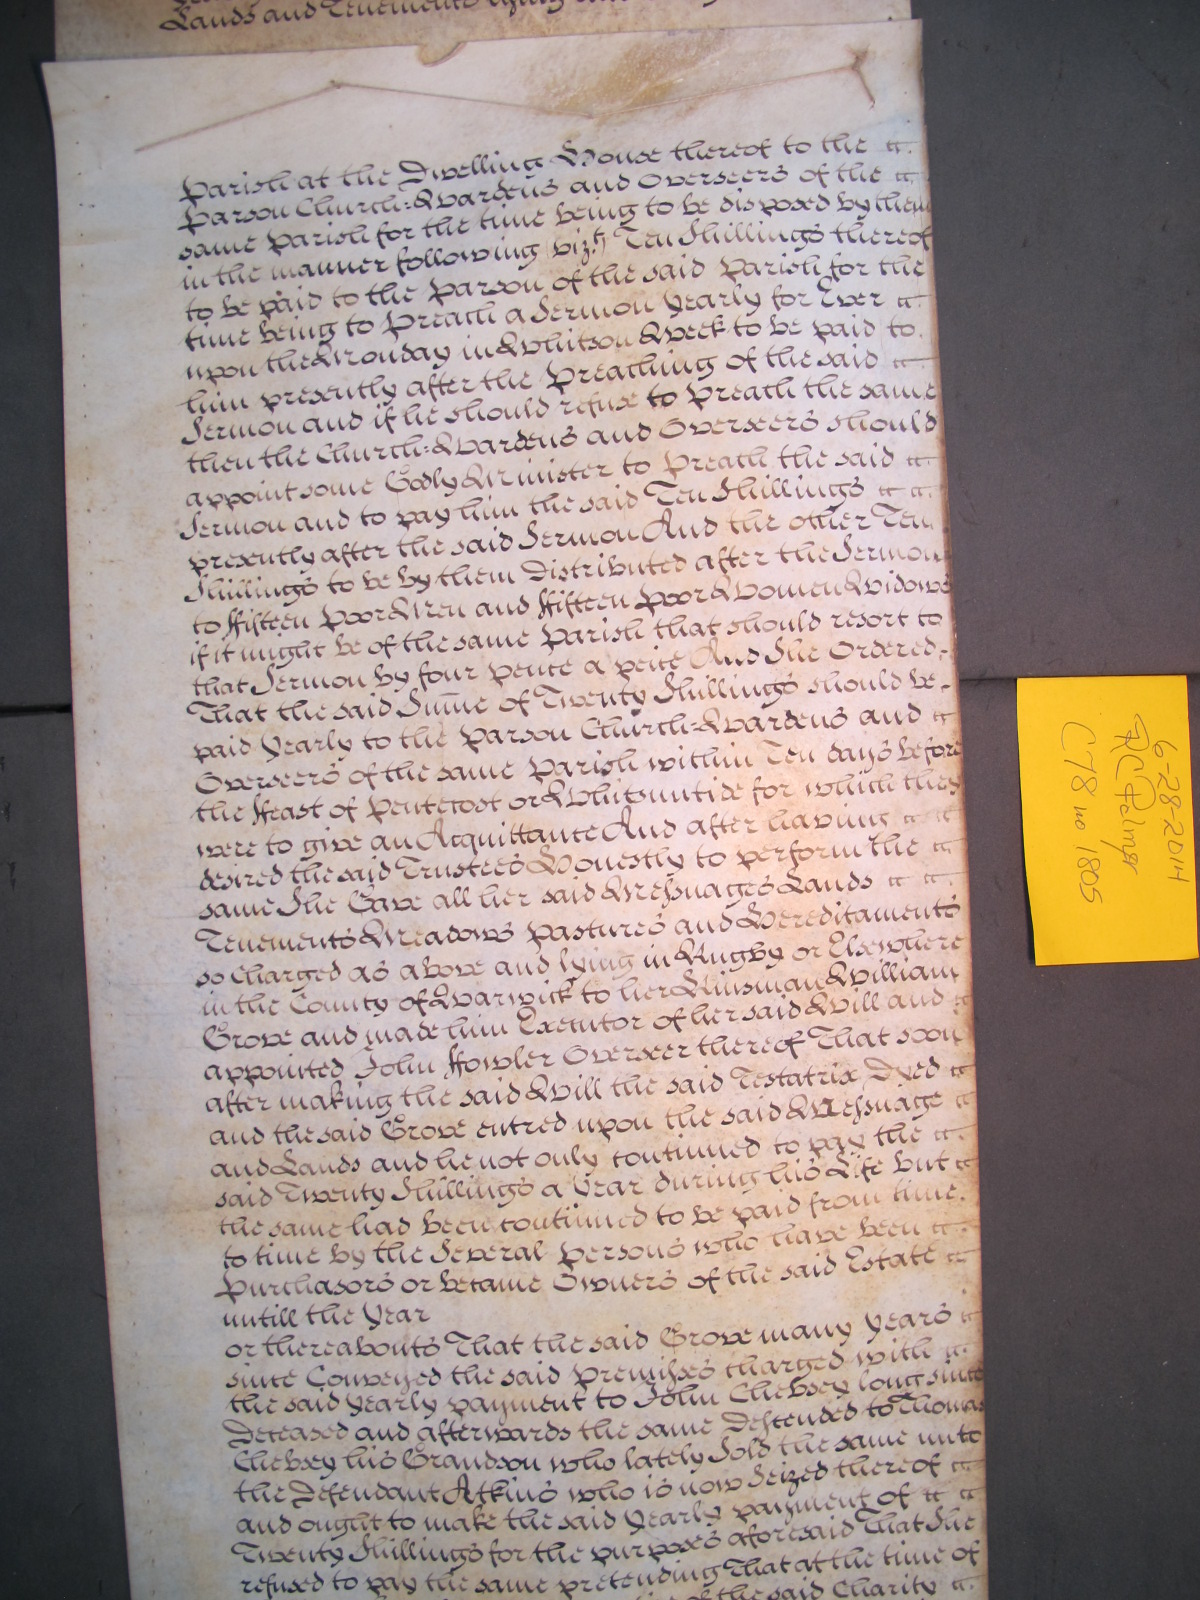 Lands and Tenements lying
Parish at the Dwelling House thereof to the
Parson Church=Wardens and Overseers of the
same Parish for the time being to be disposed by them
in the manner following vizt Ten Shillings thereof
to be paid to the Parson of the said Parish for the
time being to Preach a Sermon Yearly for Ever
upon the Monday in Whitson Week to be paid to
him presently after the Preaching of the said
Sermon and if he should refuse to Preach the same
then the Church=Wardens and Overseers should
appoint some Godly Minister to Preach the said
Sermon and to pay him the said Ten Shillings
presently after the said Sermon And the other Ten
Shillings to be by them Distributed after the Sermon
to ffifteen Poor Men and ffifteen poor Women Widows
if it might be of the same Parish that should resort to
that Sermon by four pence a peice And She Ordered
That the said Sum̄e of Twenty Shillings should be
paid Yearly to the Parson Church=Wardens and
Overseers of the same Parish within Ten days before
the ffeast of Pentecost or Whitsuntide for which they
were to give an Acquittance And after having
desired the said Trustees Honestly to perform the
same She Gave all her said Messuages Lands
Tenements Meadows Pastures and Hereditaments
so Charged as above and lying in Rugby or Elsewhere
in the County of Warwick to her Kinsman William
Grove and made him Executor of her said Will and
appointed John ffowler Overseer thereof That soon
after making the said Will the said Testatrix Dyed
and the said Grove entred upon the said Messuage
and Lands and he not only continued to pay the
said Twenty Shillings a Year during his Life but
the same had been continued to be paid from time
to time by the Several Persons who have been
Purchasors or became Owners of the said Estate
untill the Year
or thereabouts That the said Grove many years
since Conveyed the said Premisses charged with
the said yearly payment to John Chebsey long since
Deceased and afterwards the same Descended to Thomas
Chebsey his Grandson who lately Sold the same unto
the Defendant Atkins who is now Seized thereof
and ought to make the said Yearly payment of
Twenty Shillings for the purposes aforesaid That She
refused to pay the same pretending That at the time of
of the said Charity
6-28-2014
RC Palmer
C78 no 1805